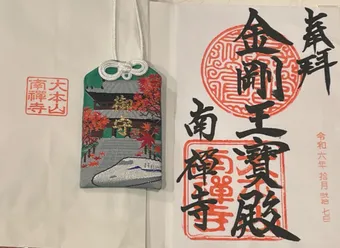 大本山
南禅寺
御守
奉拝
金剛王寶殿
南禅寺
令和六年拾月
七日